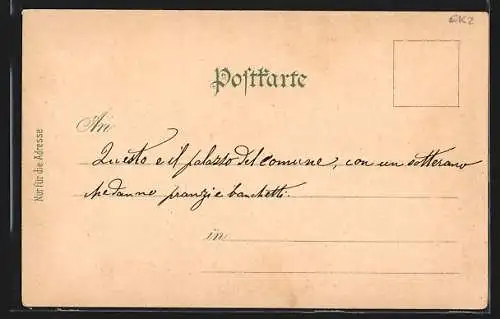 GKZ
Postkarte
An
Questo e il palazzo del comune, con un sotterano
che danno pranzi e banchetti.
in
Nur für die Adresse